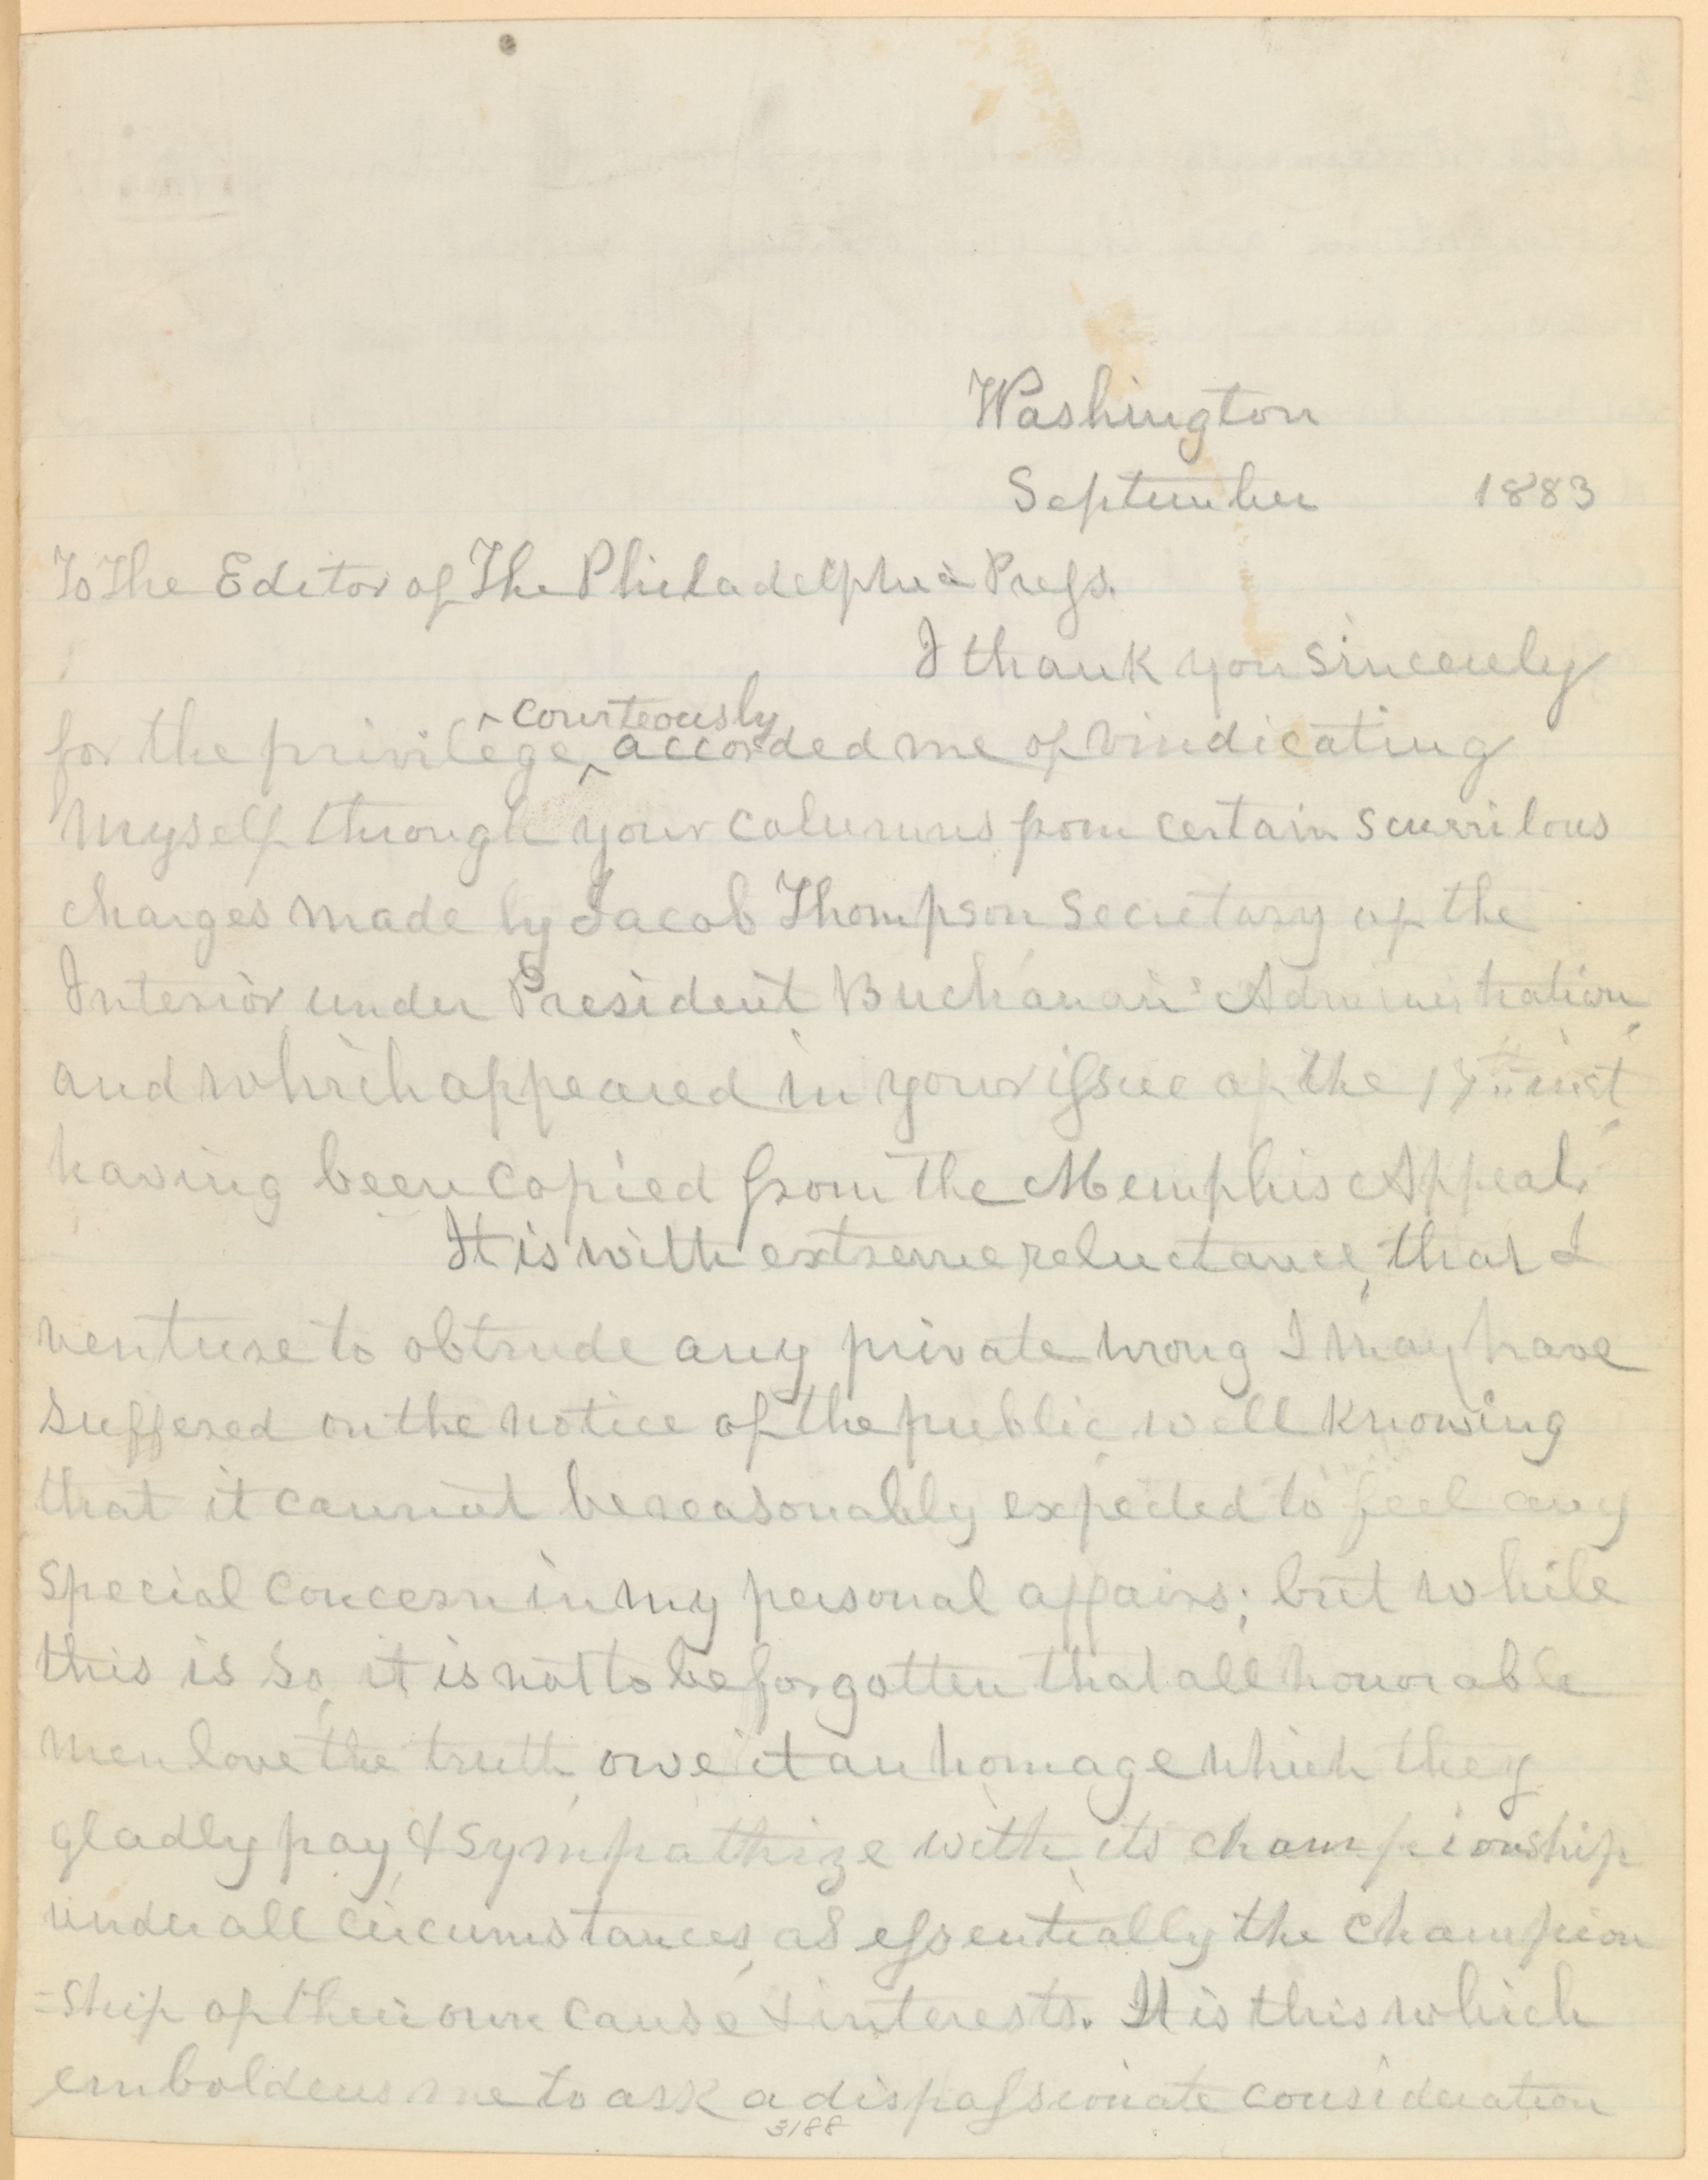 Washington
September 1883
To The Editor of The Philadelphia Press.
I thank you sincerely
courteously
for the privilege, accorded me of vindicating
myself through your columns from certain scurrilous
charges made by Jacob Thompson Secretary of the
Interior under President Buchanan's Administration,
and which appeared in your issue of the inst,
having been copied from the Memphis Appeal.
It is with extreme reluctance, that I
venture to obtrude any private wrong I may have
suffered on the notice of the public, well knowing
that it cannot be reasonably expected to feel any
special concern in my personal affairs; but while
this is so, it is not to be forgotten that all honorable
men love the truth, owe it an homage which they
gladly pay, & sympathize with its championship
under all circumstances, as essentially the champion
=ship of their own cause & interests. It is this which
emboldens me to ask a dispassionate consideration
3188